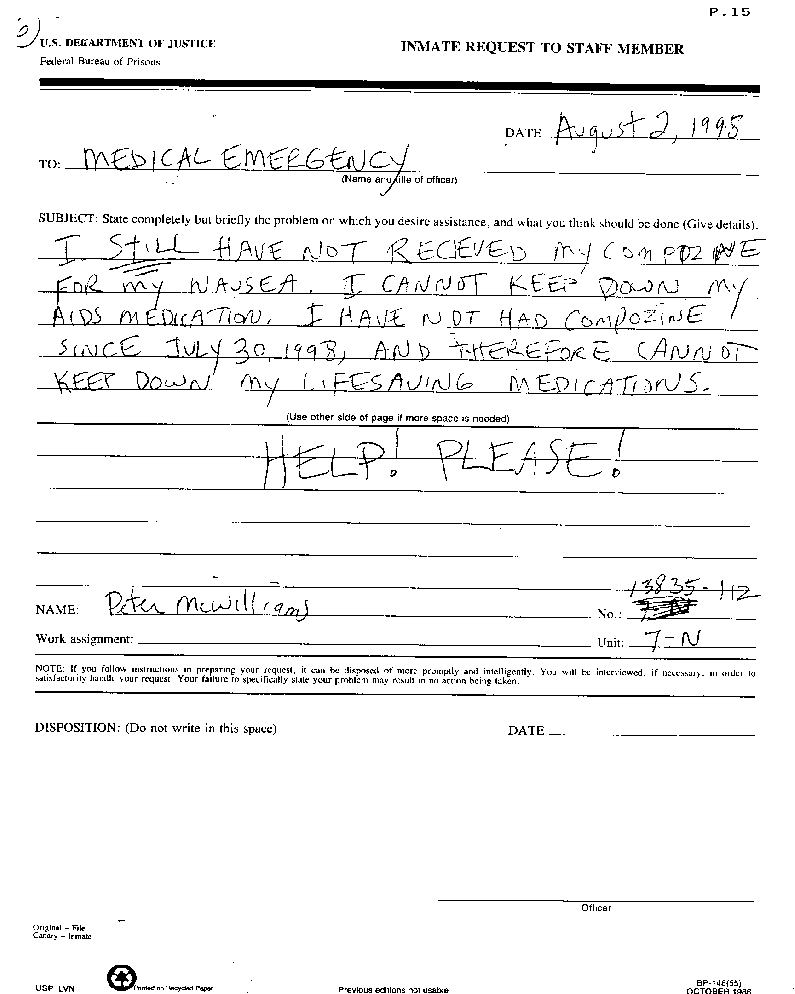 P.15
6)
U.S. DEPARTMENT OF JUSTICE
INMATE REQUEST TO STAFF MEMBER
Federal Bureau of Prisons
DATE August 2, 1998
TO: MEDICAL EMERGENCY
(Name and title of officer)
SUBJECT: State completely but briefly the problem on which you desire assistance, and what you think should be done (Give details).
I STILL HAVE NOT RECIEVED MY COMPOZINE
FOR MY NAUSEA. I CANNOT KEEP DOWN MY
AIDS MEDICATION. I HAVE NOT HAD COMPOZINE
SINCE JULY 30, 1998, AND THEREFORE CANNOT
KEEP DOWN MY LIFESAVING MEDICATIONS.
(Use other side of page if more space is needed)
HELP! PLEASE!
NAME: Peter McWilliams
No.: 13835-112
Work assignment:
Unit: 7-N
NOTE: If you follow instructions in preparing your request, it can be disposed of more promptly and intelligently. You will be interviewed, if necessary, in order to
satisfactorily handle your request. Your failure to specifically state your problem may result in no action being taken.
DISPOSITION: (Do not write in this space)
DATE
Officer
Original – File
Canary – Inmate
USP LVN
Printed on Recycled Paper
Previous editions not usable
BP-148(55)
OCTOBER 1986